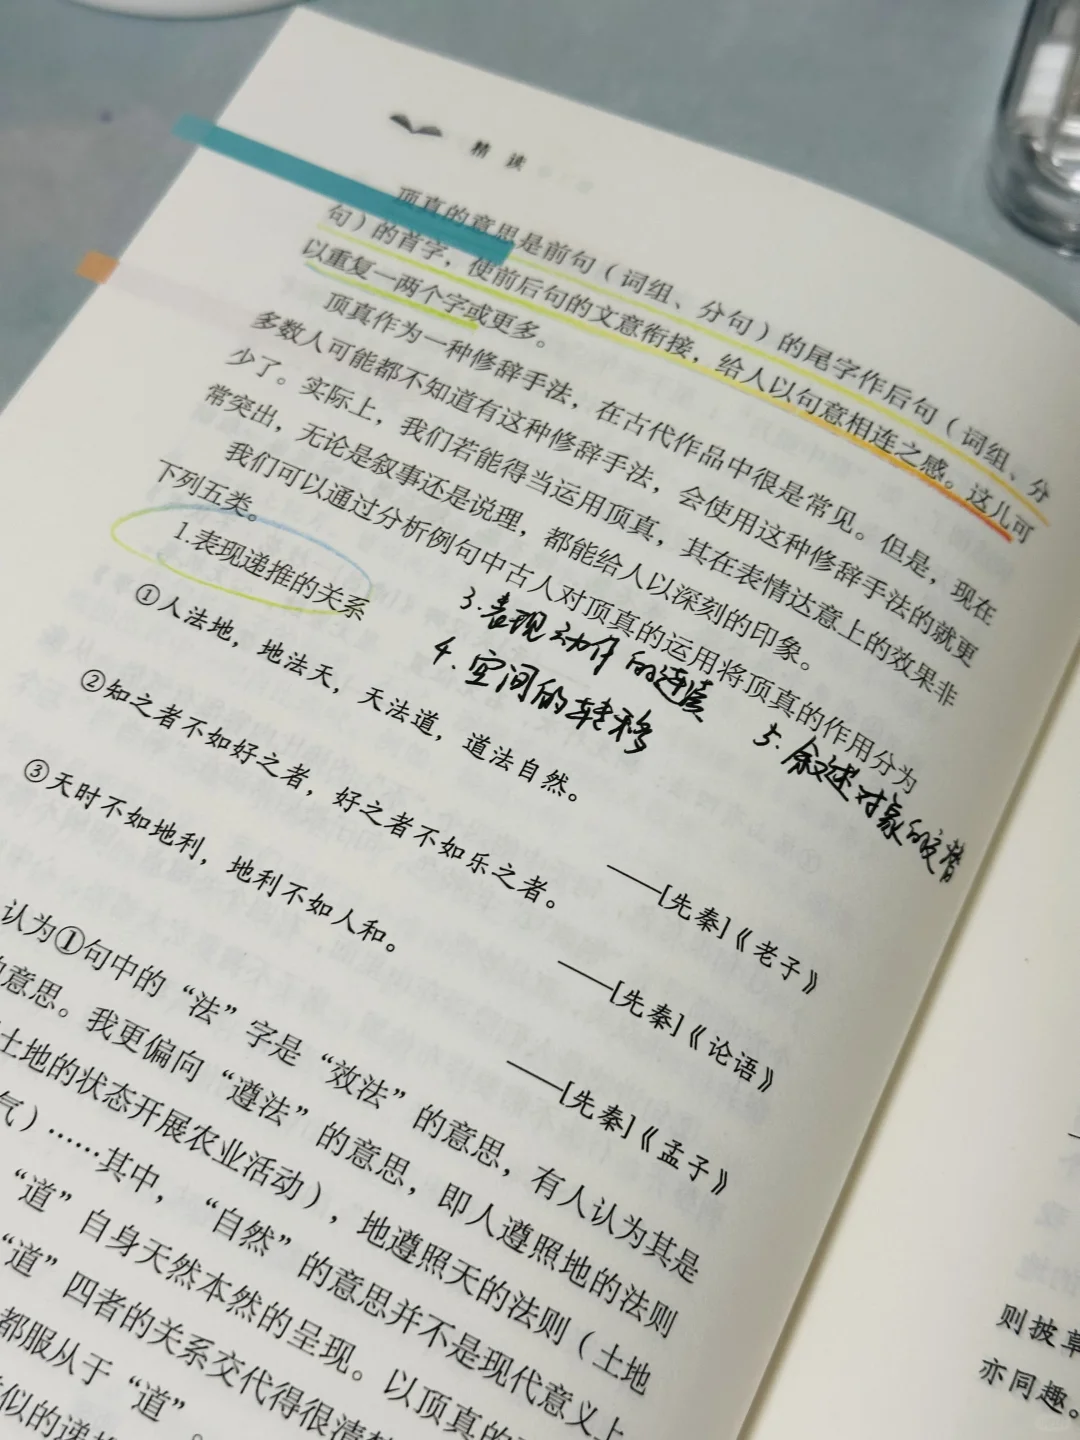 精 读
顶真的意思是前句（词组、分句）的尾字作后句（词组、分
句）的首字，使前后句的文意衔接，给人以句意相连之感。这儿可
以重复一两个字或更多。
顶真作为一种修辞手法，在古代作品中很是常见。但是，现在
多数人可能都不知道有这种修辞手法，会使用这种修辞手法的就更
少了。实际上，我们若能得当运用顶真，其在表情达意上的效果非
常突出，无论是叙事还是说理，都能给人以深刻的印象。
我们可以通过分析例句中古人对顶真的运用将顶真的作用分为
下列五类。
1.表现递推的关系
3.表现动作的连续
4.空间的转移
5.叙述对象的交替
①人法地，地法天，天法道，道法自然。
——[先秦]《老子》
②知之者不如好之者，好之者不如乐之者。
——[先秦]《论语》
③天时不如地利，地利不如人和。
——[先秦]《孟子》
认为①句中的“法”字是“效法”的意思，有人认为其是
意思。我更偏向“遵法”的意思，即人遵照地的法则
土地的状态开展农业活动），地遵照天的法则（土地
气）……其中，“自然”的意思并不是现代意义上
“道”自身天然本然的呈现。以顶真的
“道”四者的关系交代得很清
都服从于“道”。
似的递
则披草
亦同趣。